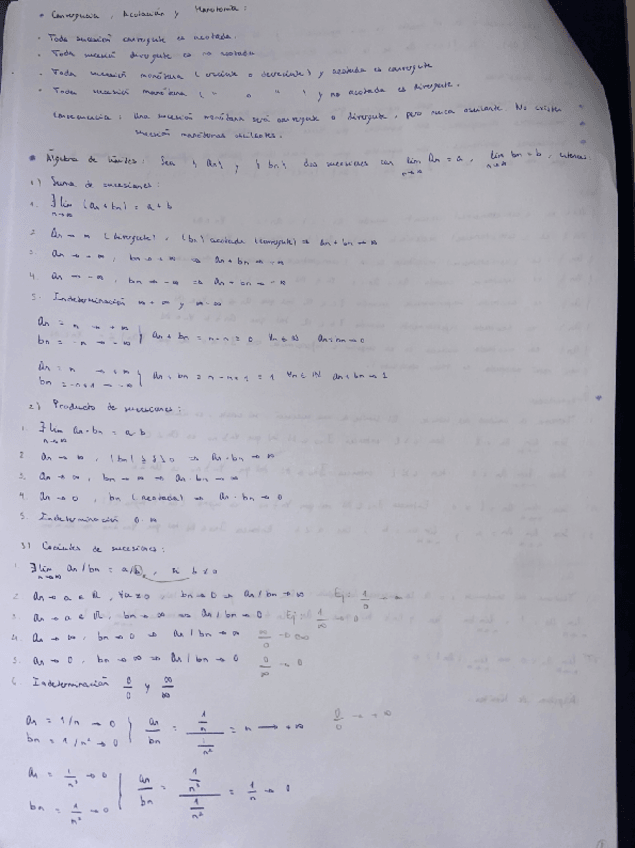 • Convergencia, Acotación y Monotonía:
• Toda sucesión convergente es acotada.
• Toda sucesión divergente es no acotada
• Toda sucesión monótona (creciente o decreciente) y acotada es convergente
• Toda sucesión monótona ( " o " ) y no acotada es divergente.
Consecuencia: una sucesión monótona será convergente o divergente, pero nunca oscilante. No existen
sucesiones monótonas oscilantes.
• Álgebra de límites: Sea {An} y {bn} dos sucesiones con lim An = a, lim bn = b, entonces:
n→∞ n→∞
1) Suma de sucesiones:
1. ∃ lim (an + bn) = a + b
n→∞
2. an → ∞ (divergente), {bn} acotada (convergente) ⇒ an + bn → ∞
3. an → +∞, bn → +∞ ⇒ an + bn → +∞
4. an → -∞, bn → -∞ ⇒ an + bn → -∞
5. Indeterminación
an = n → +∞
bn = -n → -∞ } an + bn = n - n = 0 ∀n ∈ ℕ an + bn → 0
an = n → +∞
bn = -n+1 → -∞ } an + bn = n - n + 1 = 1 ∀n ∈ ℕ an + bn → 1
2) Producto de sucesiones:
1. ∃ lim an · bn = a · b
n→∞
2. an → ∞, ⇒ an · bn → ∞
3. an → ∞, bn → ∞ ⇒ an · bn → ∞
4. an → 0, bn (acotada) ⇒ an · bn → 0
5. Indeterminación 0 · ∞
3) Cocientes de sucesiones:
1. ∃ lim an / bn = a/b, si b ≠ 0
n→∞
2. an → a ∈ ℝ, bn → 0 ⇒ an / bn → ∞ Ej: 1/0 → ∞
3. an → a ∈ ℝ, bn → ∞ ⇒ an / bn → 0 Ej: 1/∞ → 0
4. an → ∞, bn → 0 ⇒ an / bn → ∞ ∞/0 → ∞
5. an → 0, bn → ∞ ⇒ an / bn → 0 0/∞ → 0
6. Indeterminación 0/0 y ∞/∞
an = 1/n → 0
bn = 1/n² → 0 } an/bn = (1/n)/(1/n²) = n → +∞ 0/0 → +∞
an = 1/n³ → 0
bn = 1/n² → 0 } an/bn = (1/n³)/(1/n²) = 1/n → 0